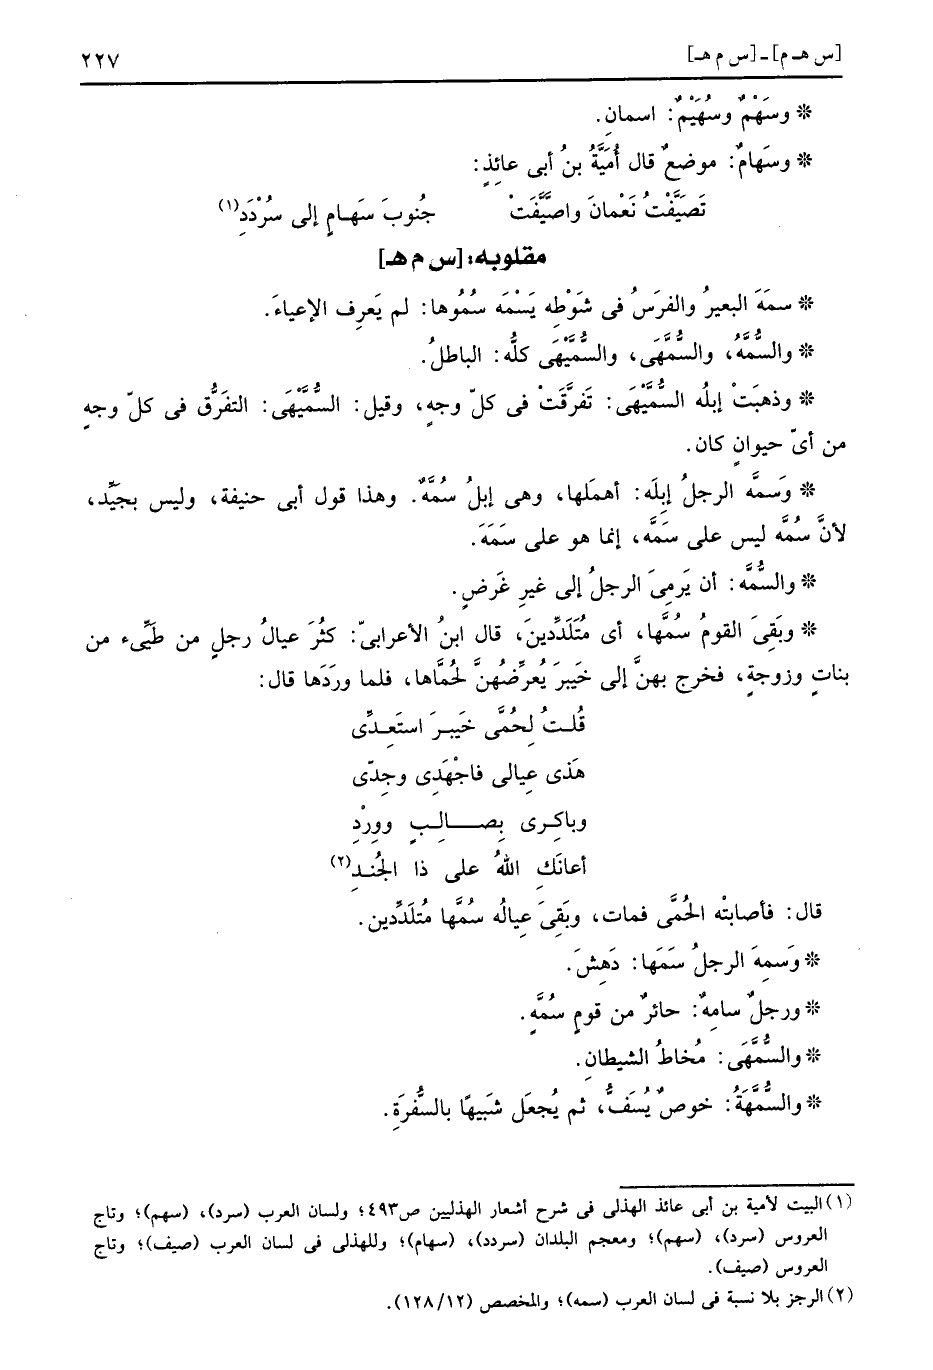 [س هـ م] ـ [س م هـ] ٢٢٧
* وسَهْمٌ وسُهَيْمٌ: اسمانِ.
* وسَهامٌ: موضعٌ قال أُمَيَّةُ بنُ أبى عائذٍ:
تَصيَّفْتُ نَعْمانَ واصَّيَّفَتْ جُنوبَ سَهـامٍ إلى سُرْدَدِ(١)
مقلوبه: [س م هـ]
* سمَهَ البعيرُ والفرَسُ فى شَوْطِه يَسْمَه سُمُوها: لم يَعرِف الإعياءَ.
* والسُّمَّهُ، والسُّمَّهَى، والسُّمَّيْهَى كلُّه: الباطلُ.
* وذهبَتْ إبلُه السُّمَّيْهَى: تَفرَّقَتْ فى كلّ وجهٍ، وقيل: السُّمَّيْهَى: التفَرُّق فى كلّ وجهٍ
من أىّ حيوانٍ كان.
* وَسمَّه الرجلُ إبِلَه: أهمَلها، وهى إبلُ سُمَّهٌ. وهذا قول أبى حنيفة، وليس بجَيِّد،
لأنَّ سُمَّه ليس على سَمَّه، إنما هو على سَمَهَ.
* والسُّمَّه: أن يَرمِىَ الرجلُ إلى غيرِ غَرَضٍ.
* وبَقِىَ القومُ سُمَّها، أى مُتَلَدِّدينَ، قال ابنُ الأعرابىّ: كثُرَ عيالُ رجلٍ من طَيِّىء من
بناتٍ وزوجةٍ، فخرج بهنَّ إلى خَيبَرَ يُعرِّضُهُنَّ لحُمَّاها، فلما وردَها قال:
قُلـتُ لِحُمَّى خَيبـرَ استَعِـدِّى
هَذى عِيالى فاجْهَدِى وجِدّى
وباكِـرى بِصـــالِـبٍ ووِرْدِ
أعانَكِ اللهُ على ذا الجُنـدِ(٢)
قال: فأصابتْه الحُمَّى فمات، وبَقِىَ عِيالُه سُمَّها مُتلَدِّدين.
* وَسمِهَ الرجلُ سَمَها: دَهِشَ.
* ورجلٌ سامِهٌ: حائرٌ من قومٍ سُمَّهٍ.
* والسُّمَّهَى: مُخاطُ الشيطانِ.
* والسُّمَّهَةُ: خوصٌ يُسَفُّ، ثم يُجعَل شَبيهًا بالسُّفرَةِ.
(١) البيت لأمية بن أبى عائذ الهذلى فى شرح أشعار الهذليين ص٤٩٣؛ ولسان العرب (سرد)، (سهم)؛ وتاج
العروس (سرد)، (سهم)؛ ومعجم البلدان (سردد)، (سهام)؛ وللهذلى فى لسان العرب (صيف)؛ وتاج
العروس (صيف).
(٢) الرجز بلا نسبة فى لسان العرب (سمه)؛ والمخصص (١٢٨/١٢).